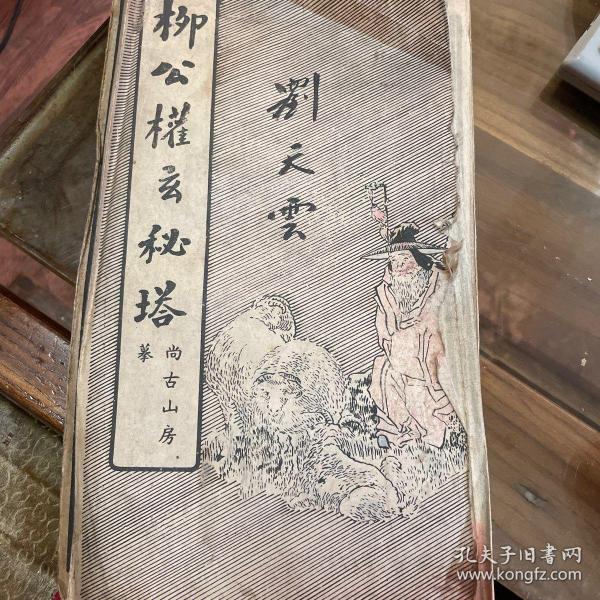 柳公權玄秘塔
尚古山房
摹
劉天雲
孔夫子旧書网
www.kongfz.com